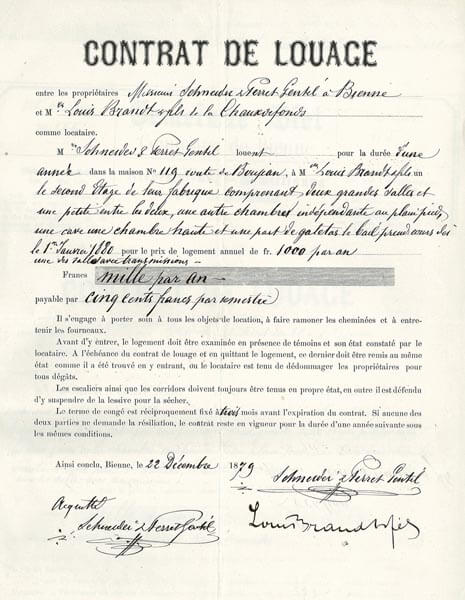 CONTRAT DE LOUAGE
entre les propriétaires Messieurs Schneider & Perret Gentil à Bienne
et M rs Louis Brandt & fils de la Chauxdefonds
comme locataire.
M rs Schneider & Perret Gentil louent pour la durée d'une
année dans la maison No 119 route de Boujean, à M rs Louis Brandt & fils
le second étage de leur fabrique comprenant deux grandes salles et
une petite entre les deux, une autre chambre indépendante au plain pied,
une cave une chambre haute et une part de galetas le bail prend cours dès
le 1er Janvier 1880 pour le prix de logement annuel de fr. 1000 par an
une des salles avec transmissions —
Francs mille par an —
payable par cinq cents francs par semestre
Il s'engage à porter soin à tous les objets de location, à faire ramoner les cheminées et à entre-
tenir les fourneaux.
Avant d'y entrer, le logement doit être examinée en présence de témoins et son état constaté par le
locataire. A l'échéance du contrat de louage et en quittant le logement, ce dernier doit être remis au même
état comme il a été trouvé en y entrant, ou le locataire est tenu de dédommager les propriétaires pour
tous dégâts.
Les escaliers ainsi que les corridors doivent toujours être tenus en propre état, en outre il est défendu
d'y suspendre de la lessive pour la sécher.
Le terme de congé est réciproquement fixé à trois mois avant l'expiration du contrat. Si aucune des
deux parties ne demande la résiliation, le contrat reste en vigueur pour la durée d'une année suivante sous
les mêmes conditions.
Ainsi conclu, Bienne, le 22 Décembre 1879
Schneider & Perret Gentil
Acquitté
Schneider & Perret Gentil
Louis Brandt & fils